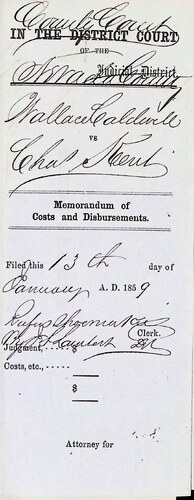 County Court
IN THE DISTRICT COURT
OF THE
Judicial District,
Wallace Caldwell
vs
Chas Kent
Memorandum of
Costs and Disbursements.
Filed this 13th day of
January A. D. 1859
Rufus
Clerk.
By Lambert
Judgment, $
Costs, etc.,
$
Attorney for